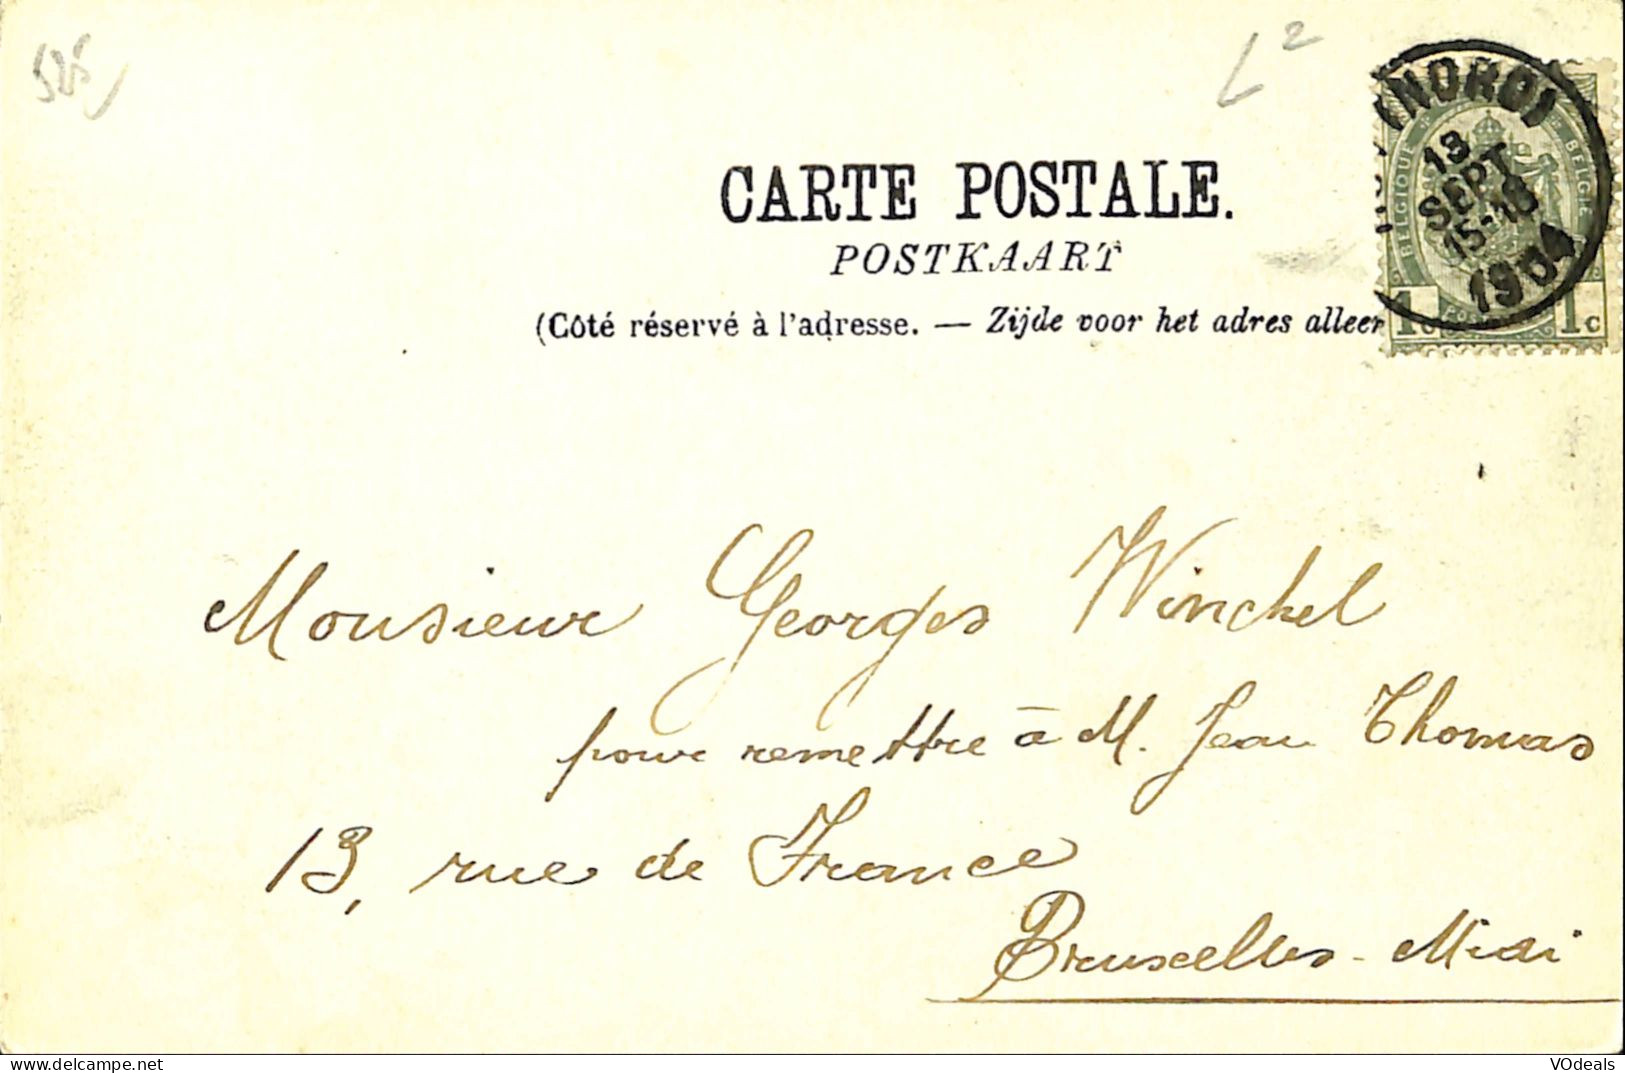 525
L 2
(NORD)
13
SEPT
15-16
1904
BELGIQUE BELGIE
1c 1c
CARTE POSTALE.
POSTKAART
(Côté réservé à l'adresse. — Zijde voor het adres alleen
Monsieur Georges Winckel
pour remettre à M. Jean Thomas
13, rue de France
Bruxelles-Midi
delcampe.net
VOdeals